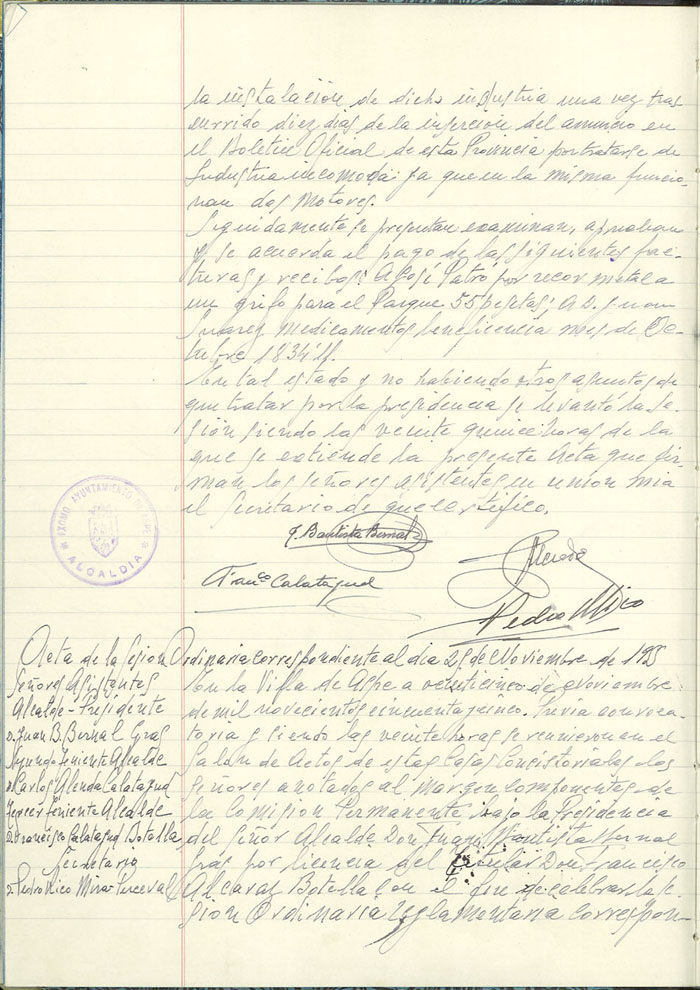 la instalación de dicha industria una vez tras-
currido diez dias de la inserción del anuncio en
el Boletin Oficial de esta Provincia por tratarse de
Industria incomoda ya que en la misma funcio-
nan dos Motores.
Seguidamente se presentan examinan, aprueban
y se acuerda el pago de las siguientes fac-
turas y recibos: A José Patró por
un grifo para el Parque 55 pesetas; A D.
Suarez Medicamentos beneficencia mes de Oc-
tubre 1834'11.
En tal estado y no habiendo otros asuntos de
que tratar por la presidencia se levantó la Se-
sión siendo las veinte quince horas de la
que se extiende la presente Acta que fir-
man los señores asistentes en union mia
el Secretario de que certifico.
J. Bautista Bernal
EXCMO. AYUNTAMIENTO DE ASPE
ALCALDIA
Alenda
Franco Calatayud
Pedro Mico
Acta de la Sesion Ordinaria correspondiente al dia 25 de Noviembre de 1955
Señores Asistentes
Alcalde-Presidente
D. Juan B. Bernal Gras
Segundo Teniente Alcalde
D. Carlos Alenda Calatayud
Tercer Teniente Alcalde
D. Francisco Calatayud Botella
Secretario
D. Pedro Mico Mira-Perceval
En la Villa de Aspe a veinticinco de Noviembre
de mil novecientos cincuenta y cinco. Previa convoca-
toria y siendo las veinte horas se reunieron en el
Salon de Actos de estas Casas Consistoriales los
señores anotados al margen componentes de
la Comision Permanente bajo la Presidencia
del Señor Alcalde Don Juan Bautista Bernal
Gras por licencia del titular Don Francisco
Alcaraz Botella con el fin de celebrar la Se-
sión Ordinaria reglamentaria correspon-